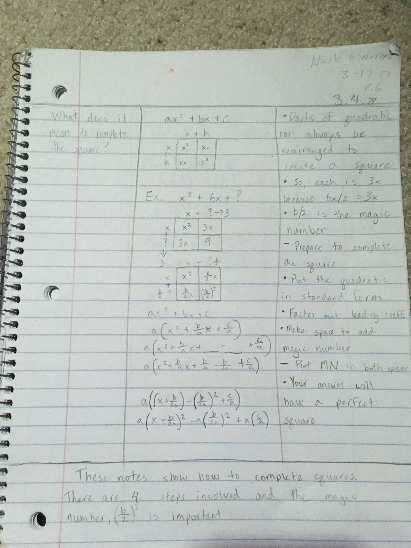 Nicole
3-17-17
P.6
3.4.3
What does it
mean to complete
the square?
ax² + bx + c
x + h
x x² xh
h hx h²
Ex. x² + 6x + ?
x + ? → 3
x x² 3x
? 3x 9
3
ax² + bx + c
a(x² + b/a x +
a((x + b/2a) - (b/2a)² + c/a)
a(x + b/2a)² - a(b/2a)² + a(c/a)
• Parts of quadratic
can always be
rearranged to
create a square
• So, each is 3x
because 6x/2 = 3x
• b/2 is the magic
number
- Prepare to complete
the square
• Put the quadratic
in standard form
• Factor out leading coeff
• Make space to add
magic number
- Put MN in both spaces
• Your answer will
have a perfect
square
These notes show how to complete squares.
There are 4 steps involved and the magic
number, (b/2)² is important